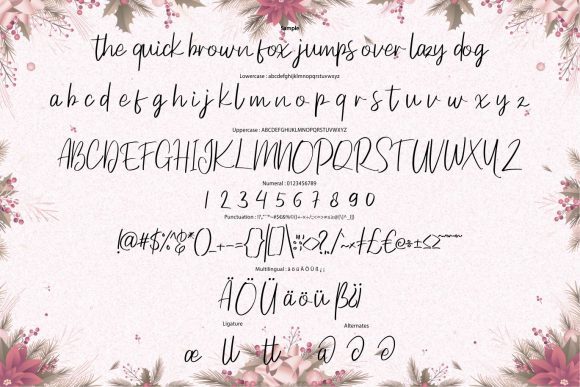 Sample
the quick brown fox jumps over lazy dog
Lowercase : abcdefghijklmnopqrstuvwxyz
a b c d e f g h i j k l m n o p q r s t u v w x y z
Uppercase : ABCDEFGHIJKLMNOPQRSTUVWXYZ
ABCDEFGHIJKLMNOPQRSTUVWXYZ
Numeral : 0123456789
1 2 3 4 5 6 7 8 9 0
Punctuation :
!@#$%^&*()_+-={}|[]\:;<>?,./
Multilingual : ä ö ü Ä Ö Ü ß ¿ ¡
ÄÖÜ äöü ß¿¡
Ligature Alternates
æ ll tt a d e